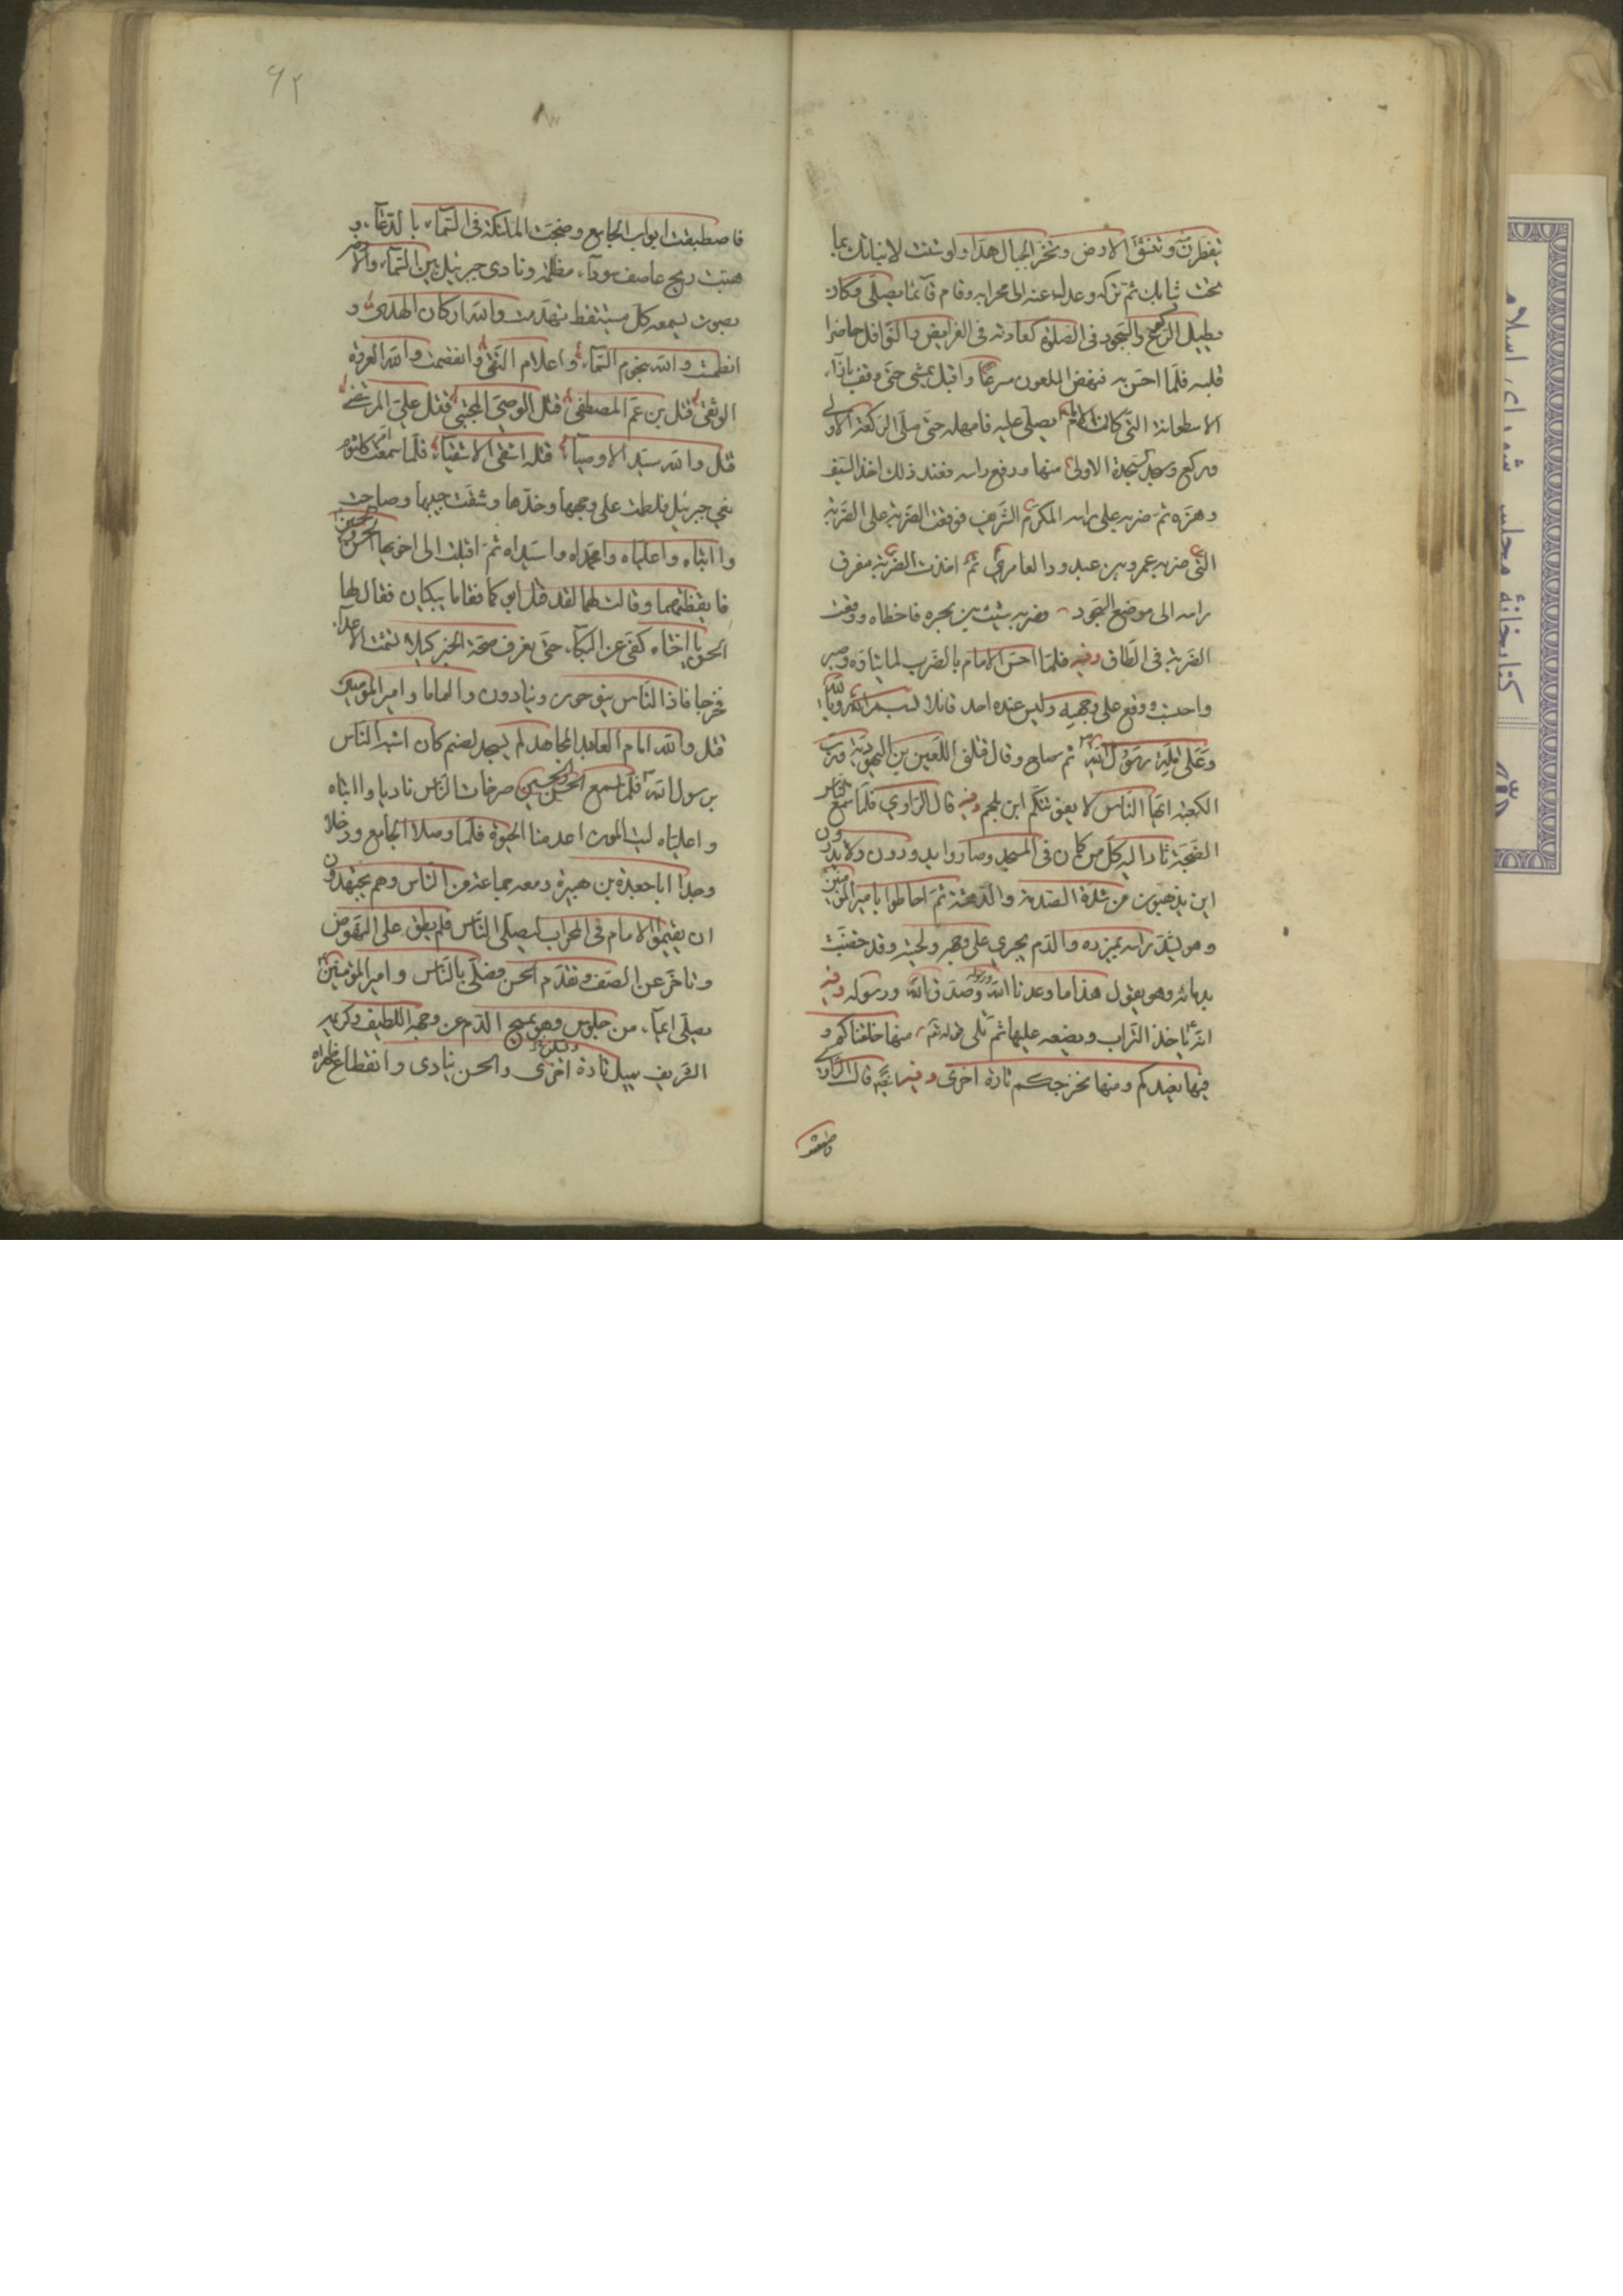 يتفطرن وتنشق الارض وتخر الجبال هدا ولو شئت لانباتك بما
تحت ثيابك ثم تركه وعدل عنه الى محرابه وقام قائما يصلي وكان
يطيل الركوع والسجود في الصلوة كعادته في الفرايض والنوافل حاضرا
قلبه فلما احس به فنهض الملعون مسرعا واقبل يمشي حتى وقف باذاء
الاسطوانة التي كان الامام يصلي عليه فامهله حتى صلى الركعة الاولى
وركع وسجد السجدة الاولى منها ورفع راسه فعند ذلك اخذ السيف
وهزه ثم ضربه على راسه المكرم الشريف فوقعت الضربة على الضربة
التي ضربه عمرو بن عبد ود العامري ثم اخذت الضربة مفرق
راسه الى موضع السجود وضربه شبيب بن بجره فاخطاه ووقعت
الضربة في الطاق وفيه فلما احس الامام بالضرب لم يتاوه وصبر
واحتسب ووقع على وجهه وليس عنده احد قائلا بسم الله وبالله
وعلى ملة رسول الله ثم صاح وقال قتلني اللعين بن اليهودية ورب
الكعبة ايها الناس لا يفوتنكم ابن ملجم وفيه قال الراوي فلما سمع الناس
الضجة ثار اليه كل من كان في المسجد وصاروا يدورون ولا يدرون
اين يذهبون من شدة الصدمة والدهشة ثم احاطوا بامير المومنين
وهو يشد راسه بميزره والدم يجري على وجهه ولحيته وقد خضبت
بدمائه وهو يقول هذا ما وعدنا الله ورسوله وصدق الله ورسوله وفيه
انه ياخذ التراب ويضعه عليها ثم تلى قوله تعم منها خلقناكم و
فيها نعيدكم ومنها نخرجكم تارة اخرى وفيه انه قال الراوي
فاصطفقت
۶۲
فاصطفقت ابواب الجامع وضجت الملئكة في السماء بالدعاء و
هبت ريح عاصف سوداء مظلمة ونادى جبرئيل بين السماء والارض
بصوت يسمعه كل مستيقظ تهدمت والله اركان الهدى و
انطمست والله نجوم السماء واعلام التقى وانفصمت والله العروة
الوثقى قتل بن عم المصطفى قتل الوصي المجتبى قتل علي المرتضى
قتل والله سيد الاوصياء قتله اشقى الاشقياء فلما سمعت ام كلثوم
نعي جبرئيل فلطمت على وجهها وخدها وشقت جيبها وصاحت
وا ابتاه واعلياه وامحمداه واسيداه ثم اقبلت الى اخويها الحسن والحسين
فايقظتهما وقالت لهما لقد قتل ابوكما فقاما يبكيان فقال لها
الحسن يا اختاه كفي عن البكاء حتى نعرف صحة الخبر كيلا تشمت الاعداء
فخرجا فاذا الناس ينوحون وينادون وا اماماه وا امير المؤمنين
قتل والله امام العابد المجاهد لم يسجد لصنم كان اشبه الناس
برسول الله فلما سمع الحسن والحسين صرخات الناس ناديا وا ابتاه
واعلياه ليت الموت اعدمنا الحيوة فلما وصلا الجامع ودخلا
وجدا ابا جعدة بن هبيرة ومعه جماعة من الناس وهم يجتهدون
ان يقيموا الامام في المحراب ليصلي بالناس فلم يطق على النهوض
وتاخر عن الصف وتقدم الحسن فصلى بالناس وامير المؤمنين
يصلي ايماء من جلوس وهو يمسح الدم عن وجهه اللطيف وكريمه
الشريف يميل تارة ويسكن اخرى والحسن ينادي وا انقطاع ظهراه
كتابخانهٔ مجلس شورای اسلامی